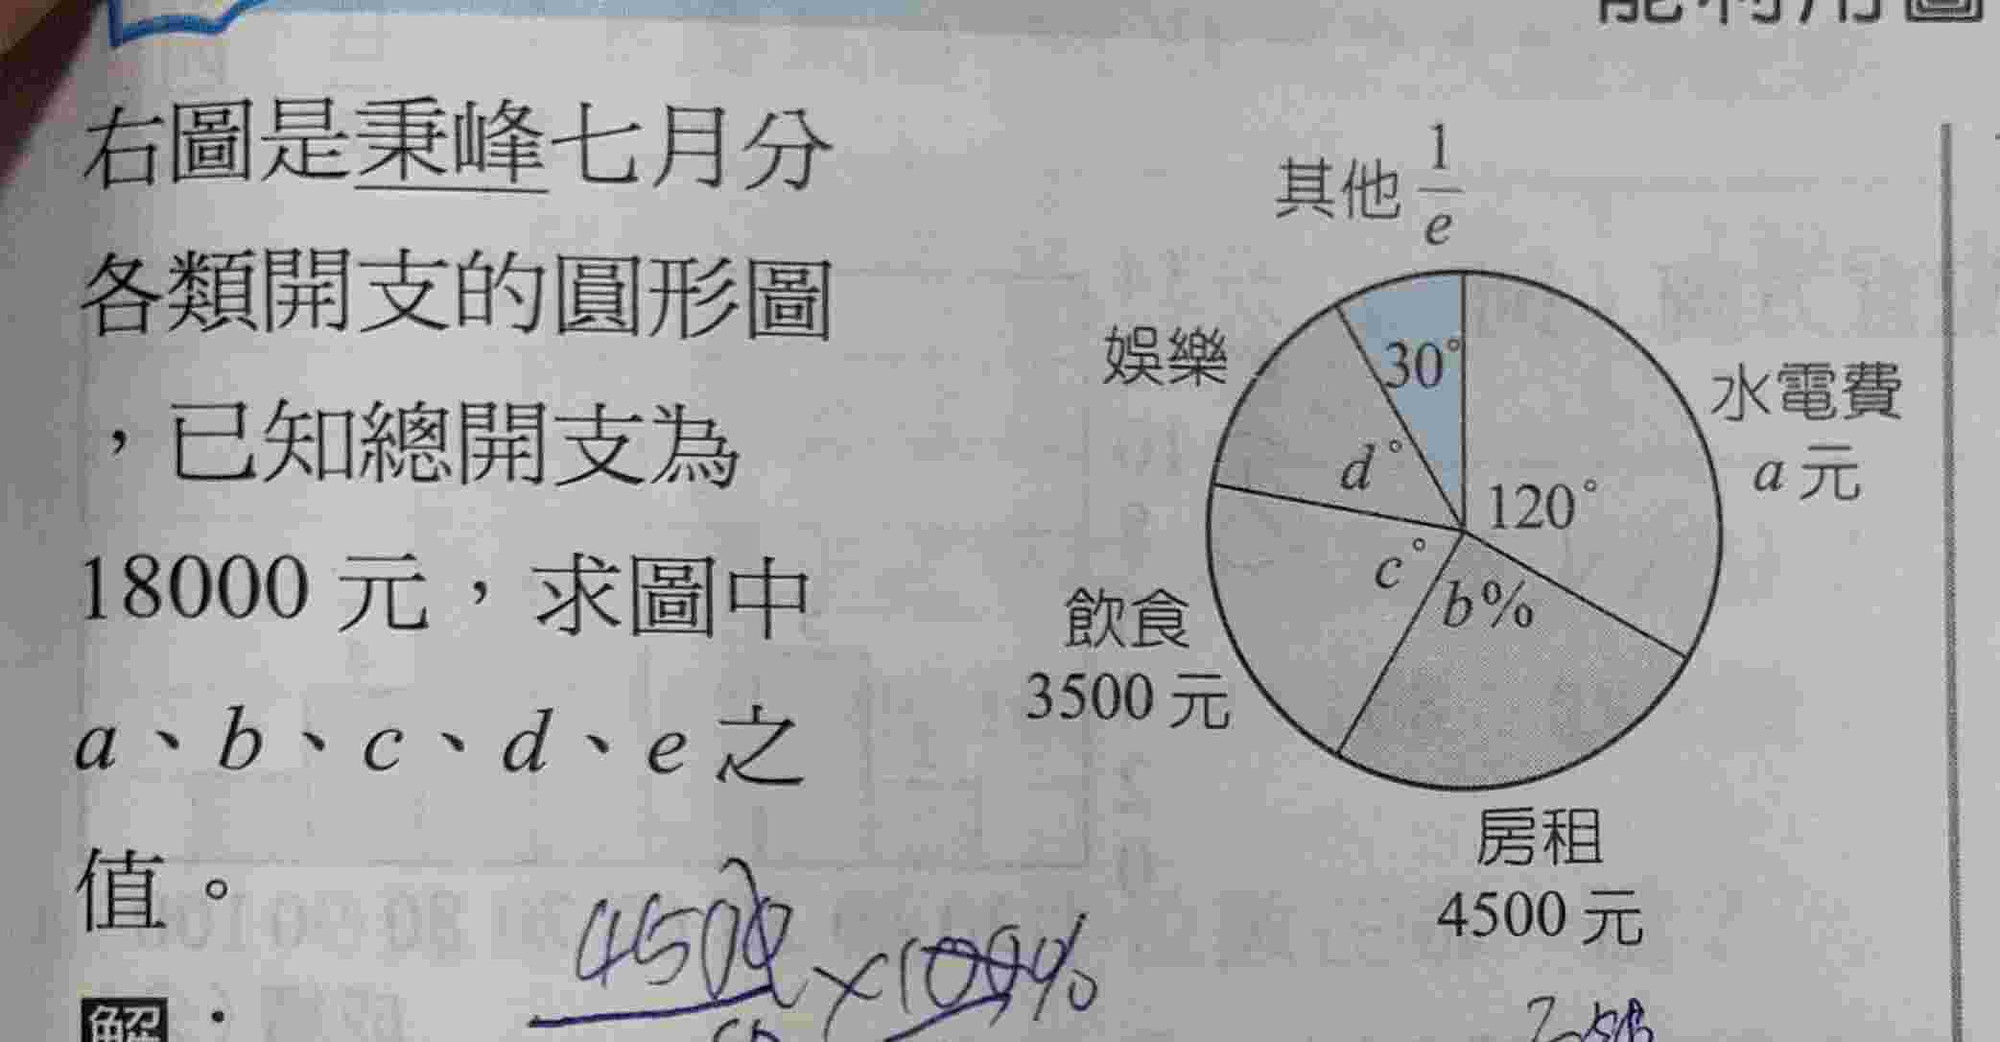 能利用圖
右圖是秉峰七月分
各類開支的圓形圖
，已知總開支為
18000 元，求圖中
a、b、c、d、e 之
值。
其他 1/e
娛樂
30°
水電費
a 元
d°
120°
c°
b%
飲食
3500 元
房租
4500 元
4500
×100%
解：